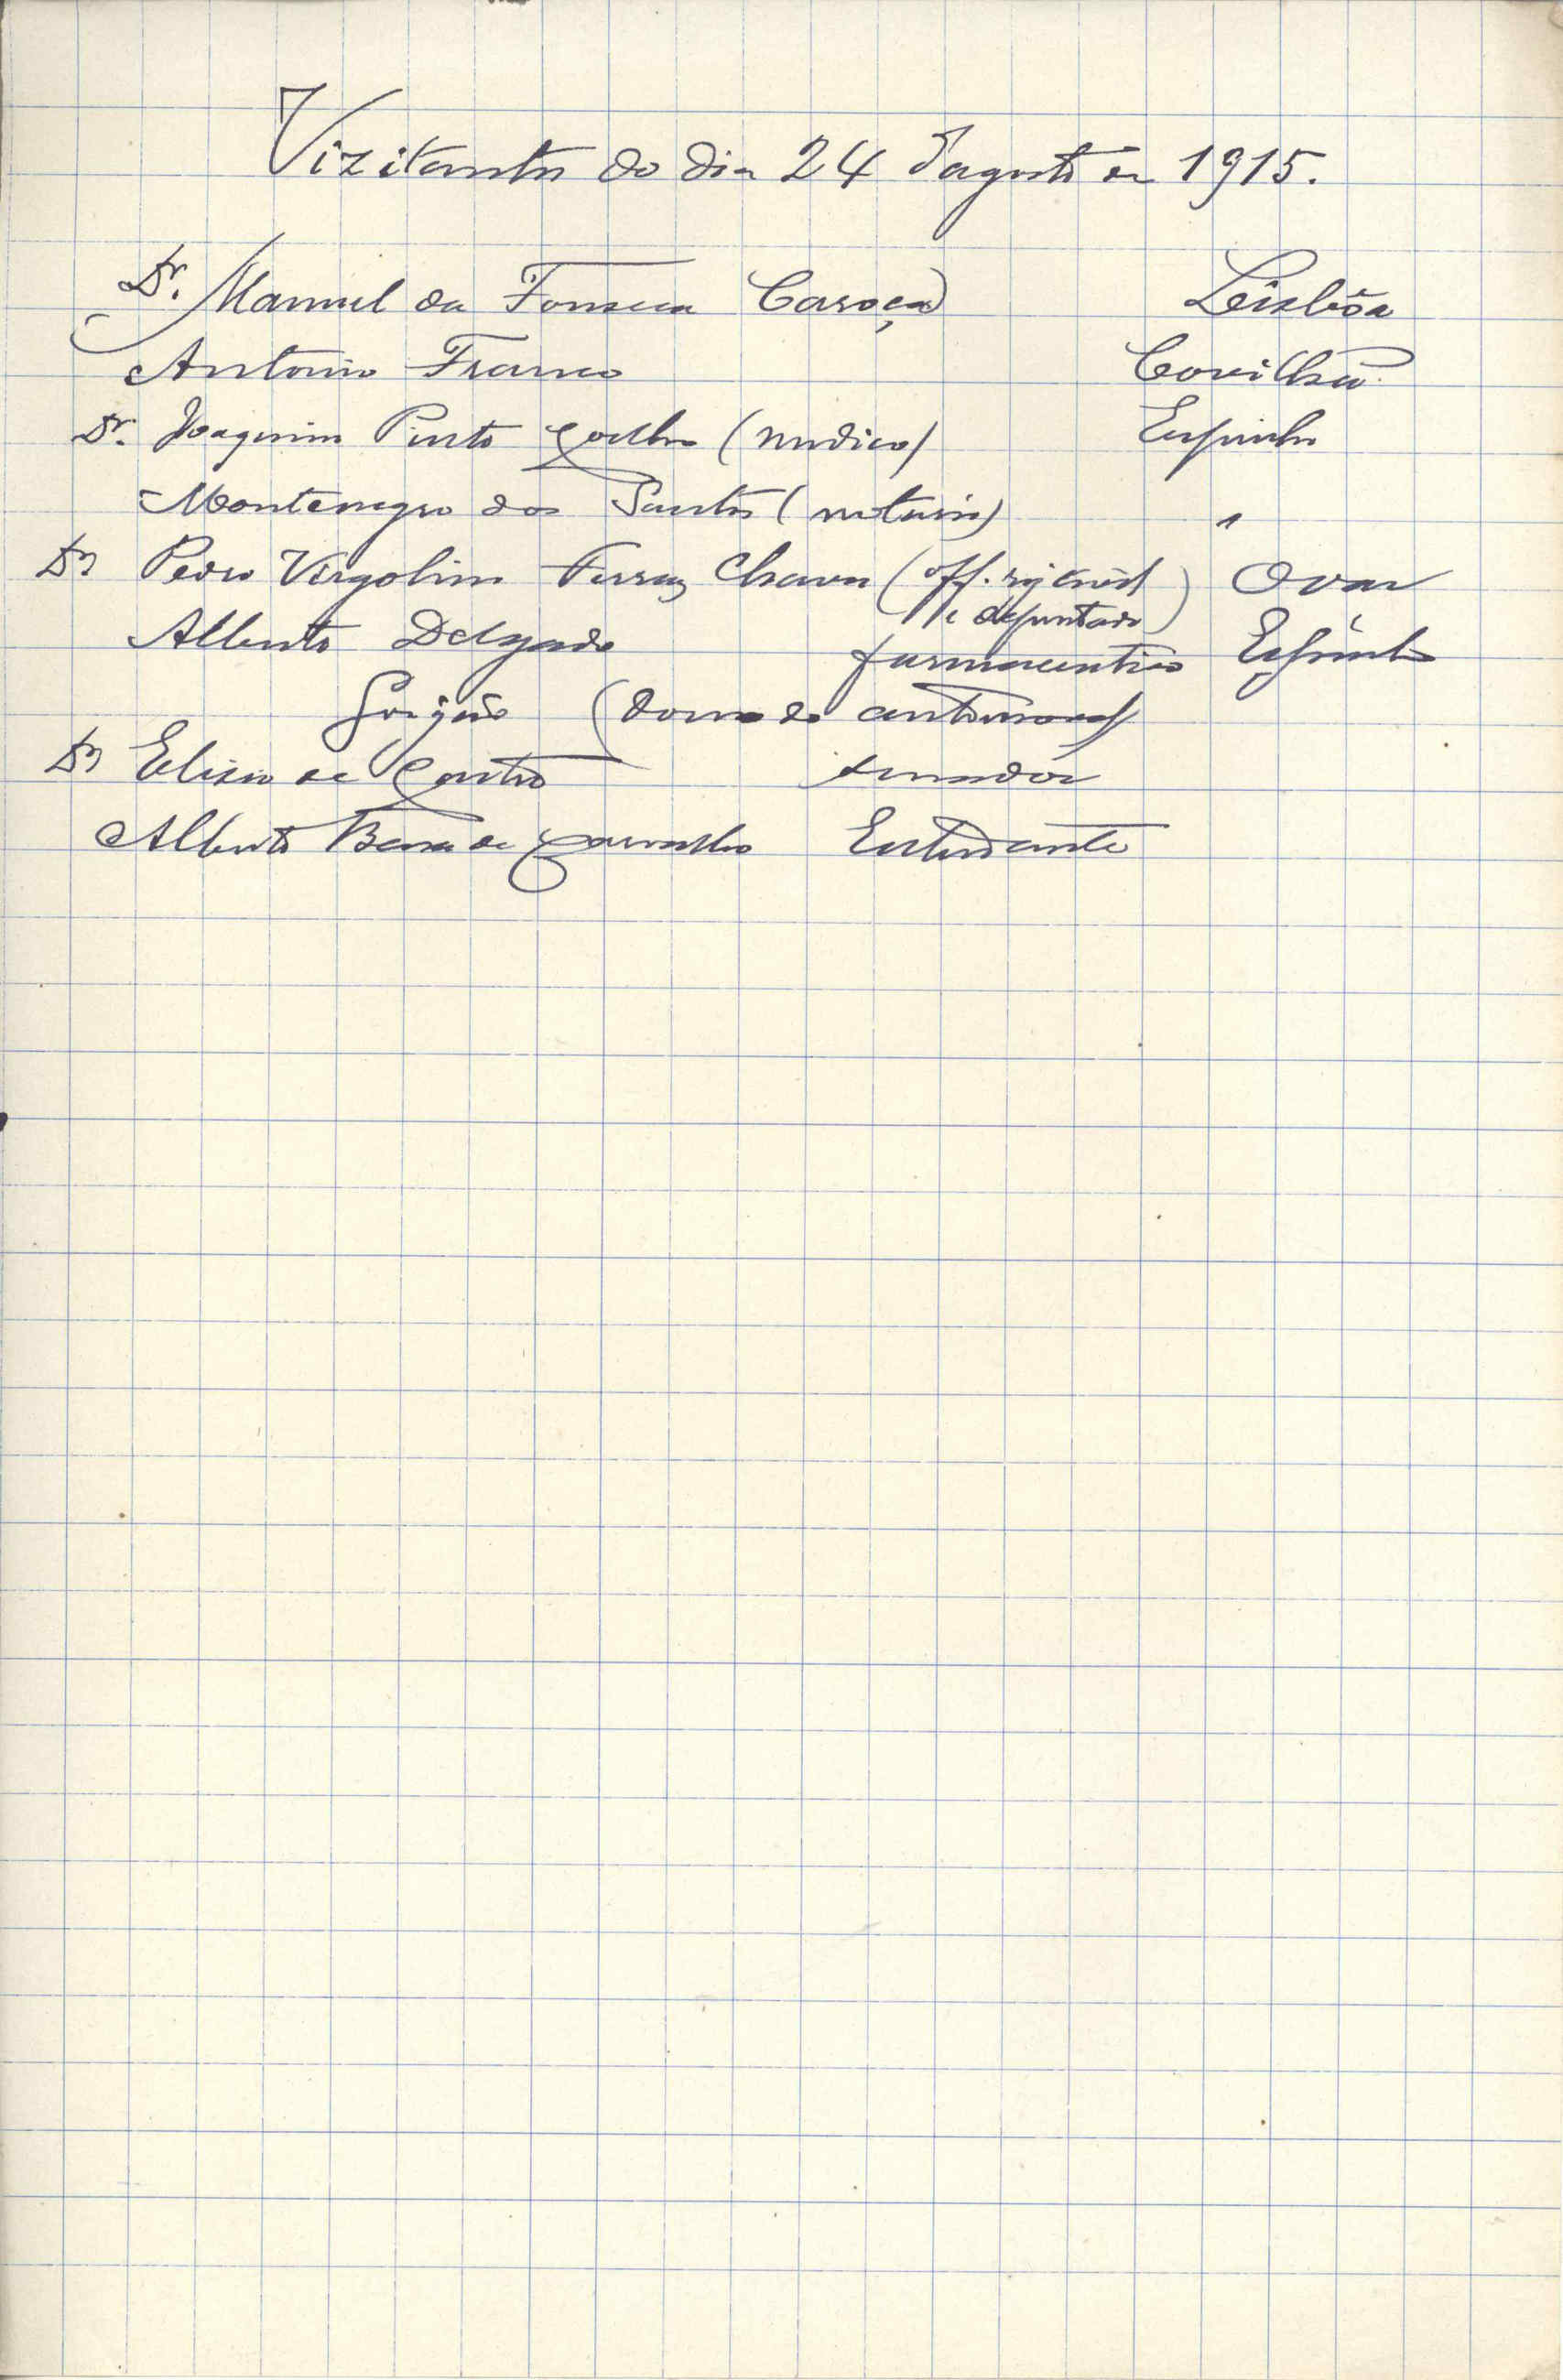 Vizitantes do dia 24 d'agosto de 1915.
Dr. Manuel da Fonseca Caroça Lisbôa
Antonio Franco Covilhã
Dr. Joaquim Pinto Coelho (medico) Espinho
Montenegro dos Santos (notario) "
Dr Pedro Virgolino Ferraz Chaves (off. reg. civil Ovar
e deputado)
Alberto Delgado farmaceutico Espinho
Gorjão (dono do automovel)
Dr Elisio de Castro senador
Alberto Bessa de Carvalho Estudante